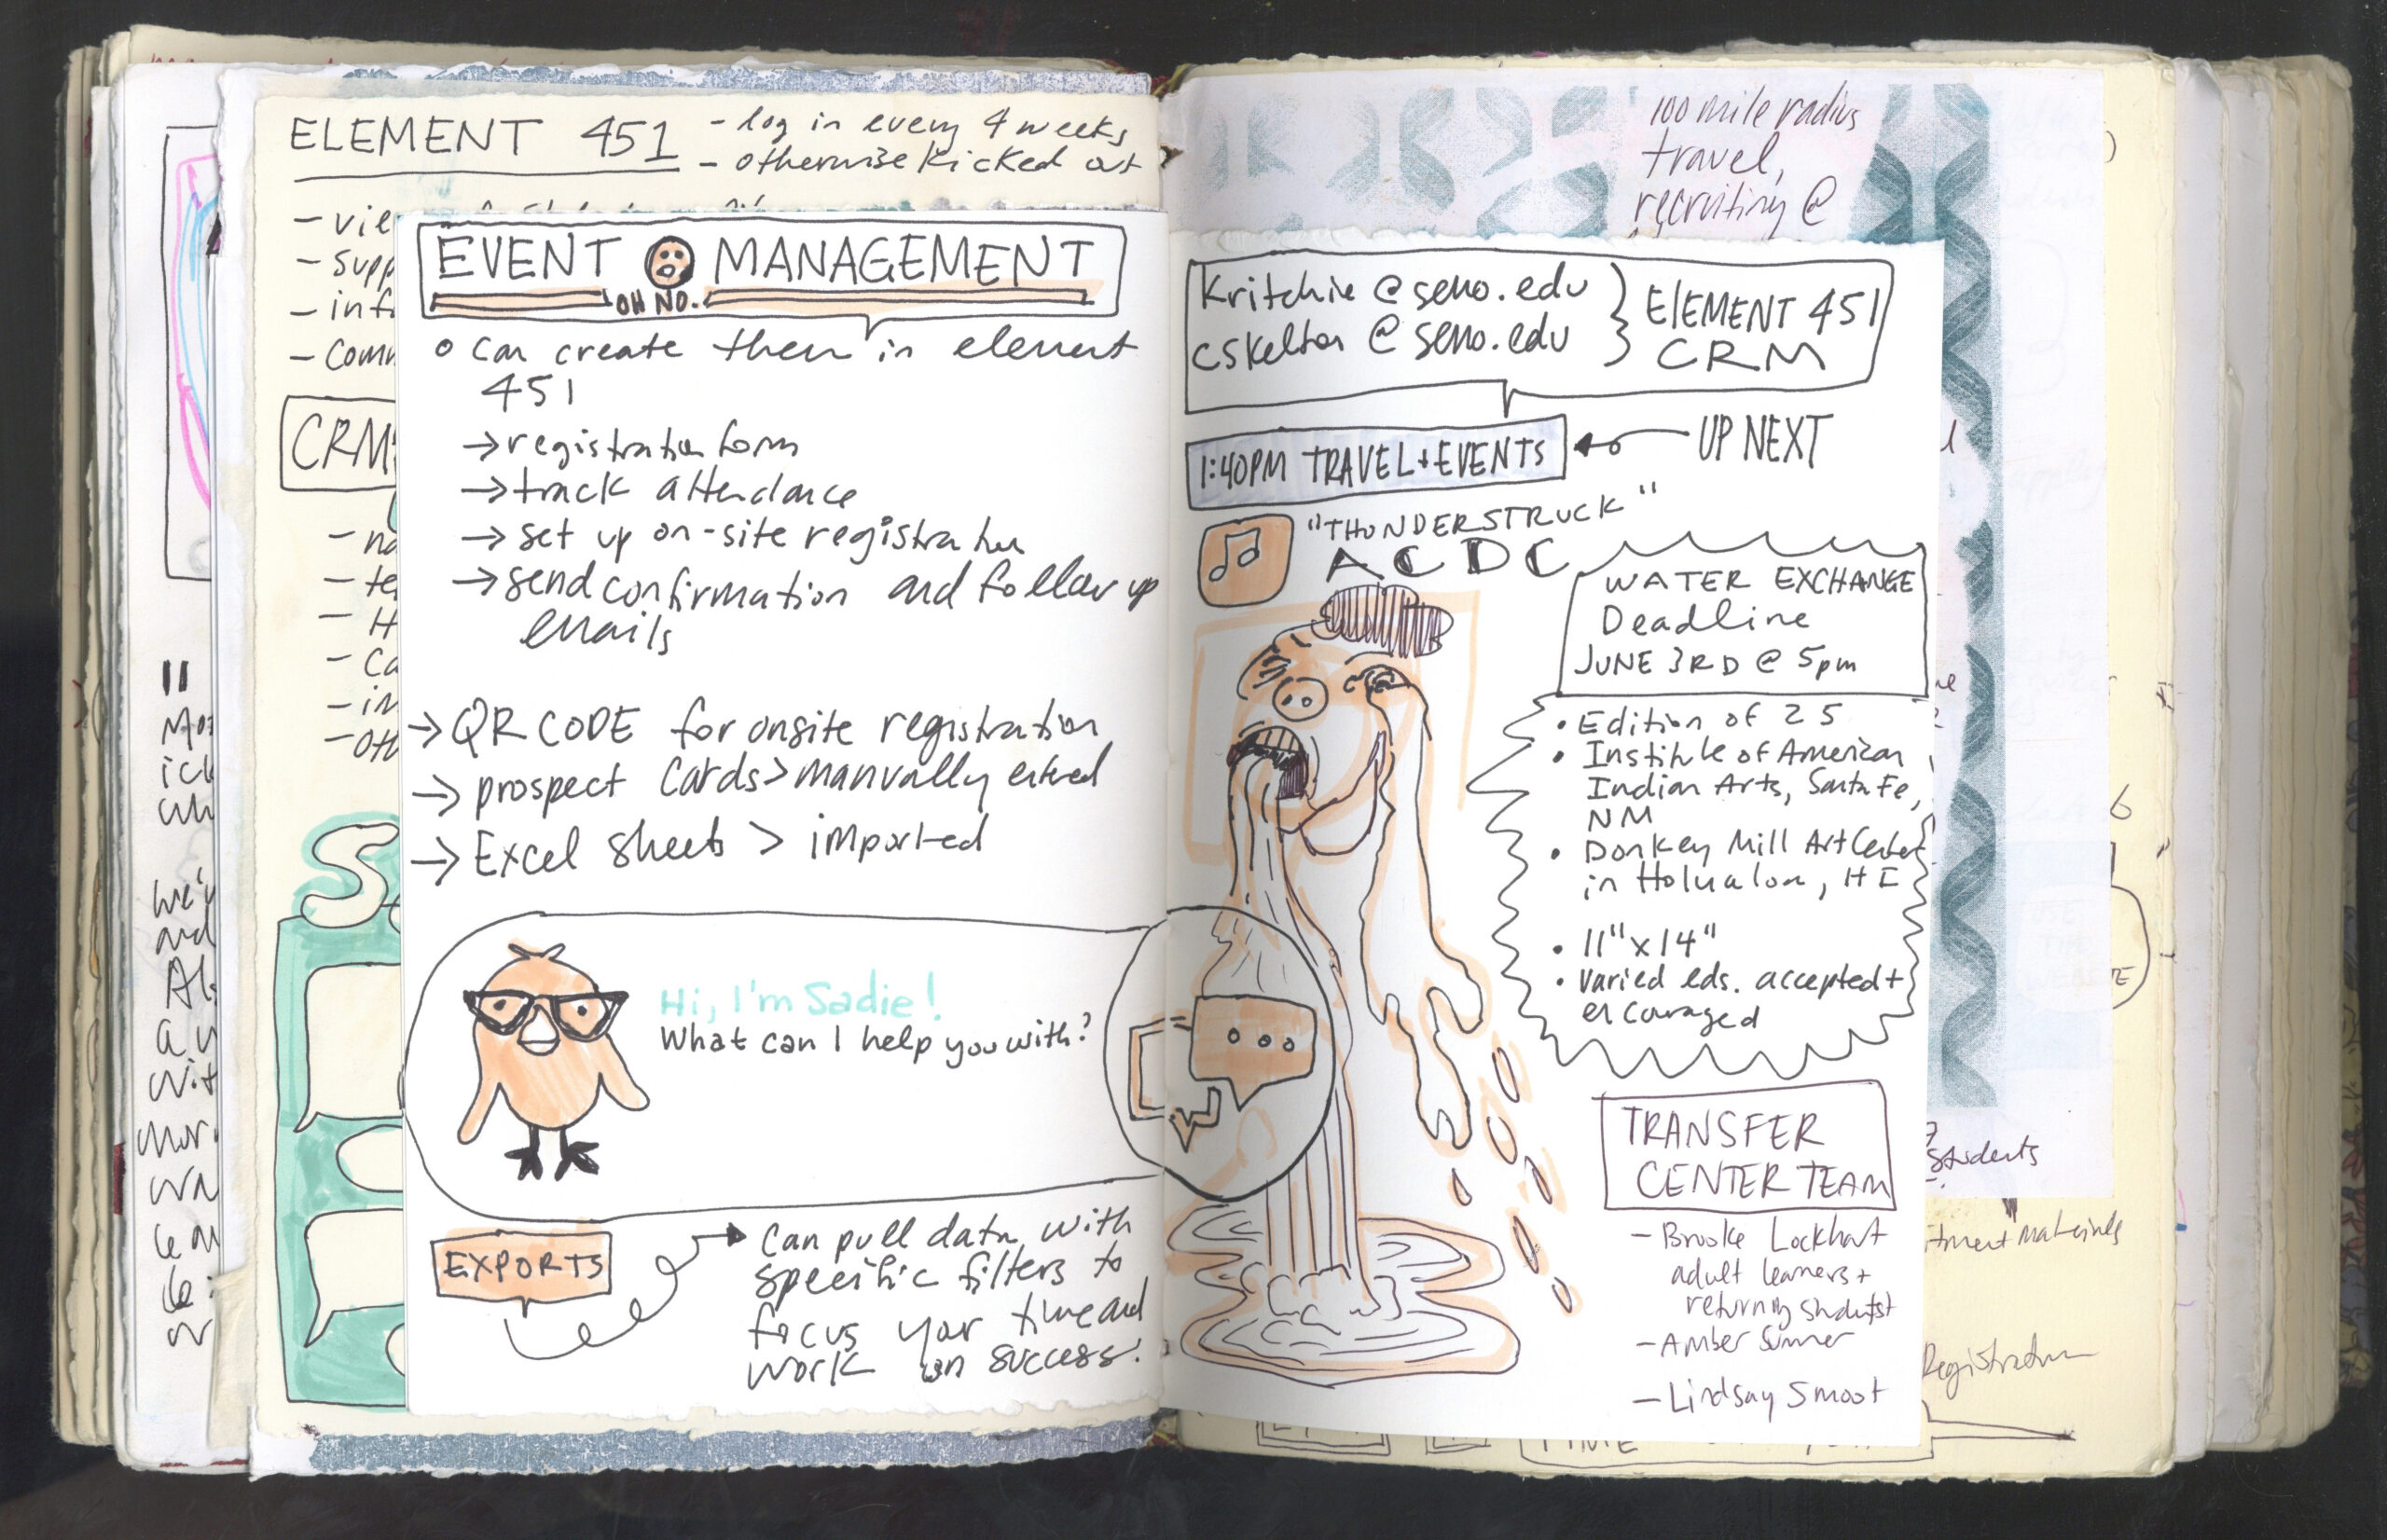 ELEMENT 451
- log in every 4 weeks
- otherwise kicked out
- vie
- supp
- inf
- comm
CRM
EVENT MANAGEMENT
OH NO.
can create them in element
451
→ registration form
→ track attendance
→ set up on-site registration
→ send confirmation and follow up
emails
→ QR CODE for onsite registration
→ prospect cards > manually entered
→ Excel sheets > imported
Hi, I'm Sadie!
What can I help you with?
EXPORTS
can pull data with
specific filters to
focus your time and
work on success!
100 mile radius
travel,
recruiting @
kritchie @ semo.edu
cskelton @ semo.edu
ELEMENT 451
CRM
1:40PM TRAVEL + EVENTS
UP NEXT
"THUNDERSTRUCK"
ACDC
WATER EXCHANGE
Deadline
JUNE 3RD @ 5pm
• Edition of 25
• Institute of American
Indian Arts, Santa Fe,
NM
• Donkey Mill Art Center
in Holualoa, HI
• 11" x 14"
• varied eds. accepted +
encouraged
TRANSFER
CENTER TEAM
- Brooke Lockhart
adult learners +
returning students
- Amber Sumner
- Lindsay Smoot
students
Registration
TIME